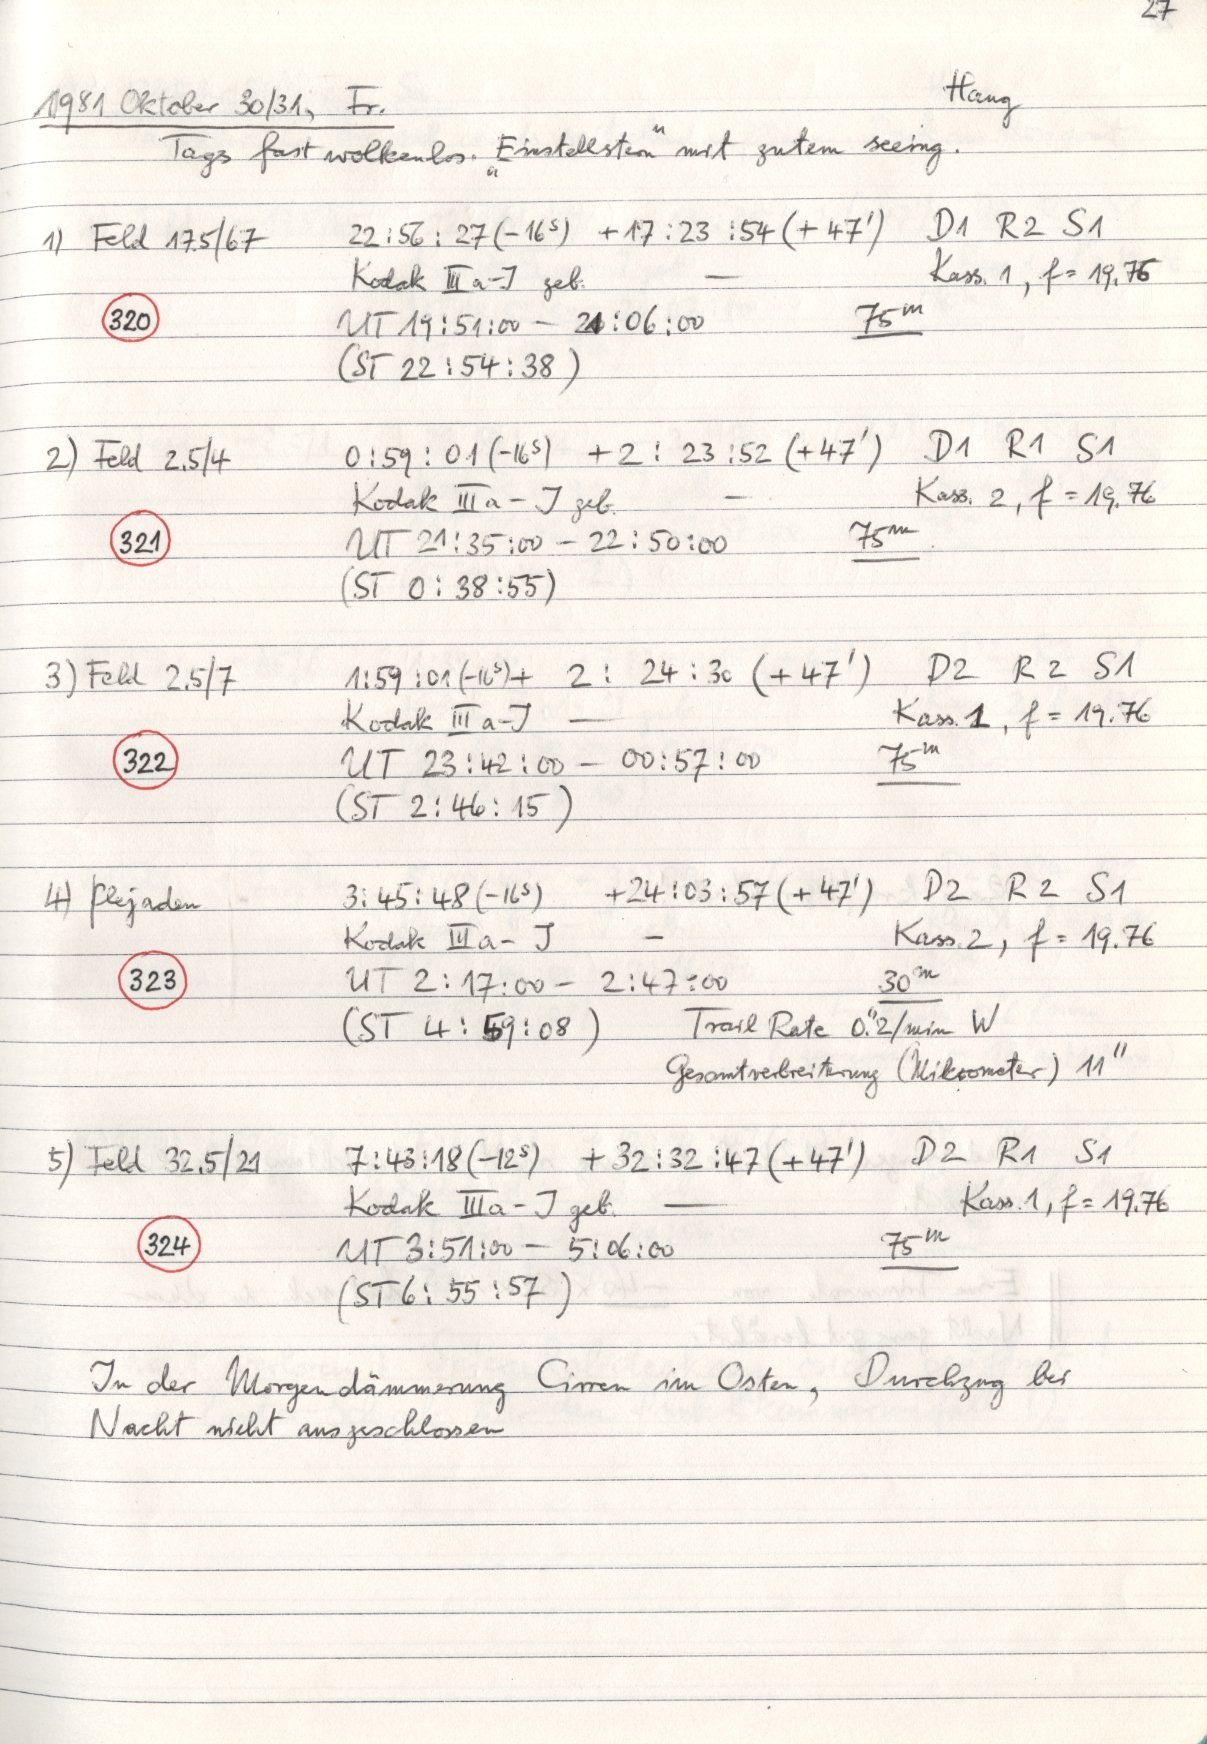 27
1981 Oktober 30/31, Fr. Haug
Tags fast wolkenlos. "Einstellstern" mit gutem seeing.
1) Feld 17.5/67 22:56:27(-16ˢ) +17:23:54(+47') D1 R2 S1
Kodak IIIa-J geb. — Kass. 1, f = 19.76
320 UT 19:51:00 - 21:06:00 75ᵐ
(ST 22:54:38)
2) Feld 2.5/4 0:59:01(-16ˢ) +2:23:52(+47') D1 R1 S1
Kodak IIIa-J geb. — Kass. 2, f = 19.76
321 UT 21:35:00 - 22:50:00 75ᵐ
(ST 0:38:55)
3) Feld 2.5/7 1:59:01(-16ˢ) + 2:24:30 (+47') D2 R2 S1
Kodak IIIa-J — Kass. 1, f = 19.76
322 UT 23:42:00 - 00:57:00 75ᵐ
(ST 2:46:15)
4) Plejaden 3:45:48(-16ˢ) +24:03:57(+47') D2 R2 S1
Kodak IIIa-J — Kass. 2, f = 19.76
323 UT 2:17:00 - 2:47:00 30ᵐ
(ST 4:59:08) Trail Rate 0."2/min W
Gesamtverbreiterung (Mikrometer) 11"
5) Feld 32.5/21 7:43:18(-12ˢ) +32:32:47(+47') D2 R1 S1
Kodak IIIa-J geb. — Kass. 1, f = 19.76
324 UT 3:51:00 - 5:06:00 75ᵐ
(ST 6:55:57)
In der Morgendämmerung Cirren im Osten, Durchzug bei
Nacht nicht ausgeschlossen